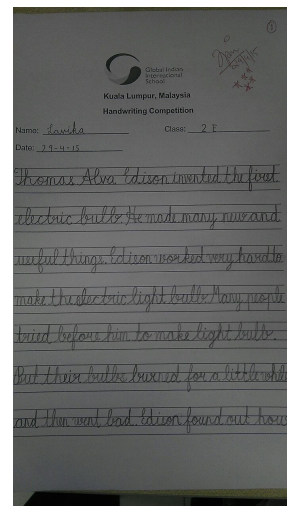 1
Global Indian
International
School
Kuala Lumpur, Malaysia
Handwriting Competition
Name: Lavika Class: 2 E
Date: 29-4-15
Thomas Alva Edison invented the first
electric bulb. He made many new and
useful things. Edison worked very hard to
make the electric light bulb. Many people
tried before him to make light bulb.
But their bulbs burned for a little while
and then went bad. Edison found out how